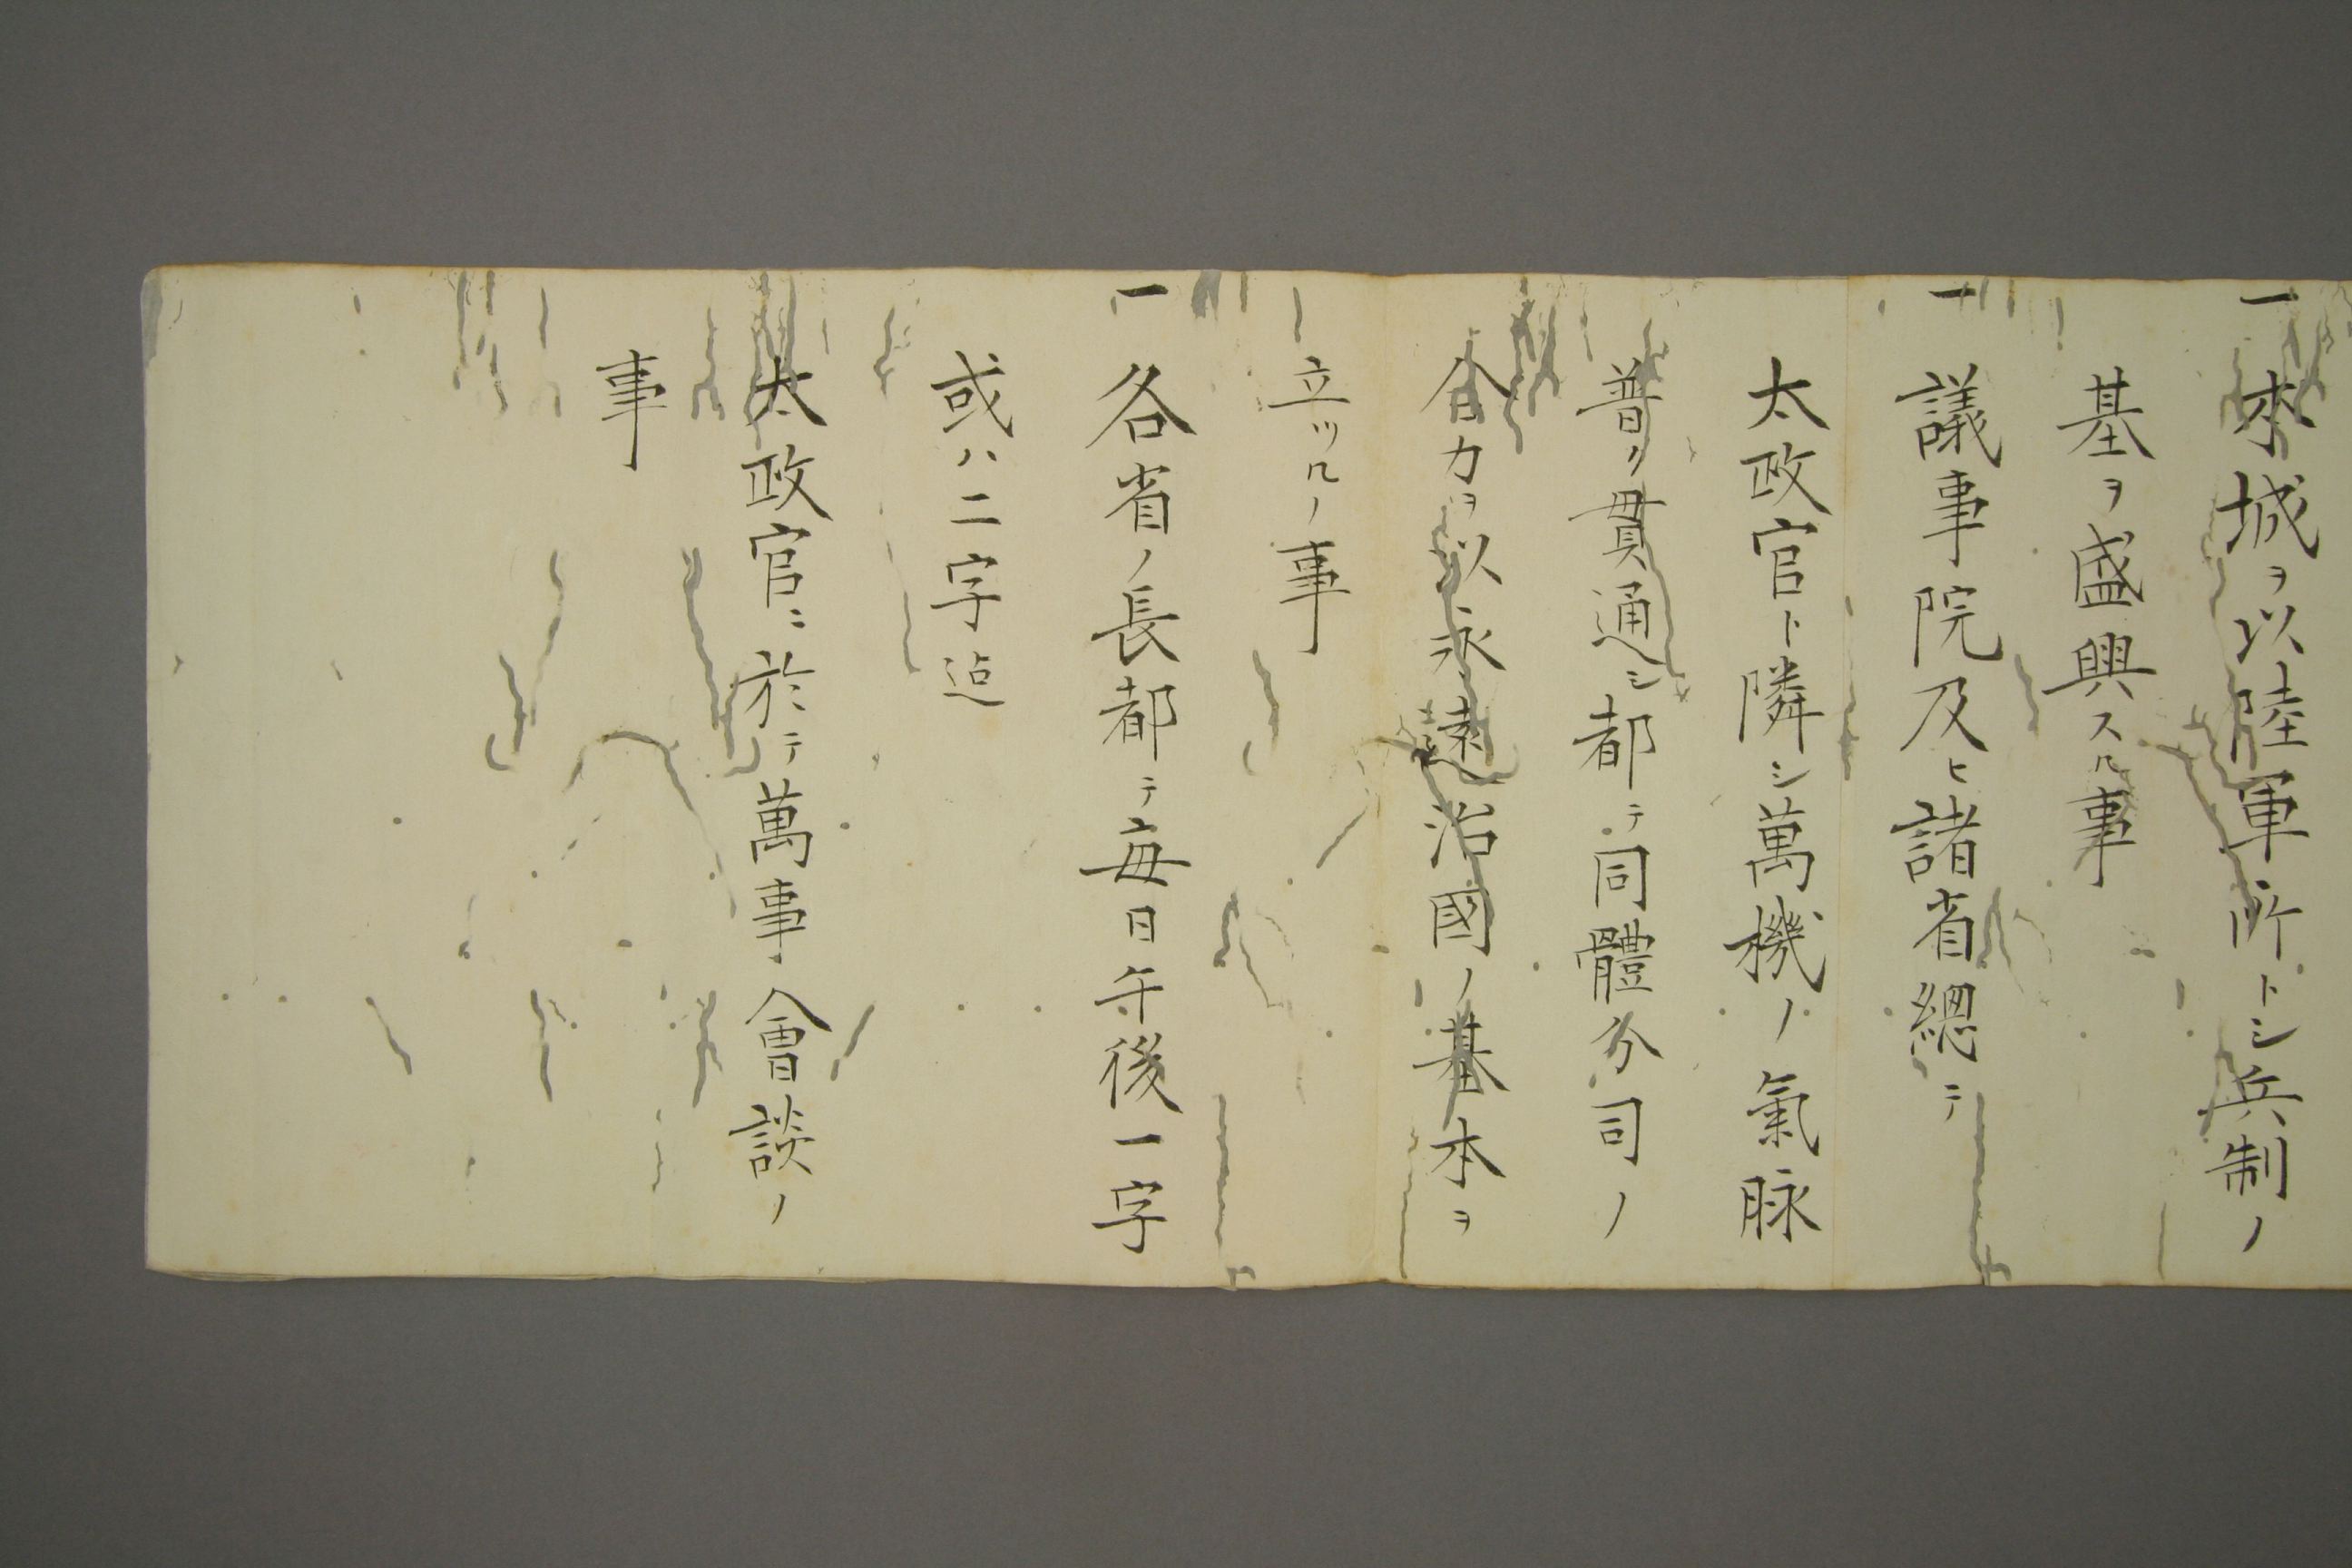 一本城ヲ以陸軍所トシ兵制ノ
基ヲ盛興スル事
一議事院及ヒ諸省總テ
太政官ト隣シ萬機ノ氣脉
普ク貫通シ都テ同體分司ノ
合力ヲ以永遠治國ノ基本ヲ
立ツルノ事
一各省ノ長都テ毎日午後一字
或ハ二字迠
太政官ニ於テ萬事會談ノ
事